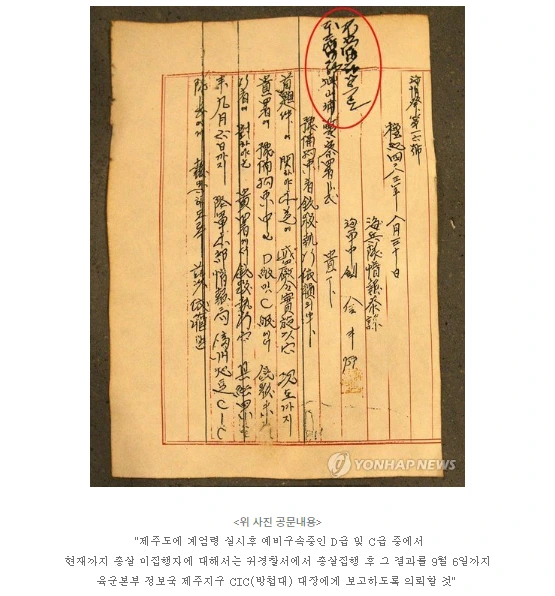 海情參第一六號
檀紀四二八三年 八月三十日
海兵隊情報參謀
海軍中領 金斗
城山浦警察署長 貴下
豫備拘束者銃殺執行依賴의件
首題件에 關하야 戒嚴令實施以後 現在까지
貴署에 豫備拘束中인 D級 및 C級에서 銃殺未
執行者에 對하야는 貴署에서 銃殺執行後 其結果를
來九月六日까지 陸軍本部情報局濟州地區CIC
隊長에게 報告하도록 依賴함
YONHAPNEWS
<위 사진 공문내용>
"제주도에 계엄령 실시후 예비구속중인 D급 및 C급 중에서
현재까지 총살 미집행자에 대해서는 귀경찰서에서 총살집행 후 그 결과를 9월 6일까지
육군본부 정보국 제주지구 CIC(방첩대) 대장에게 보고하도록 의뢰할 것"